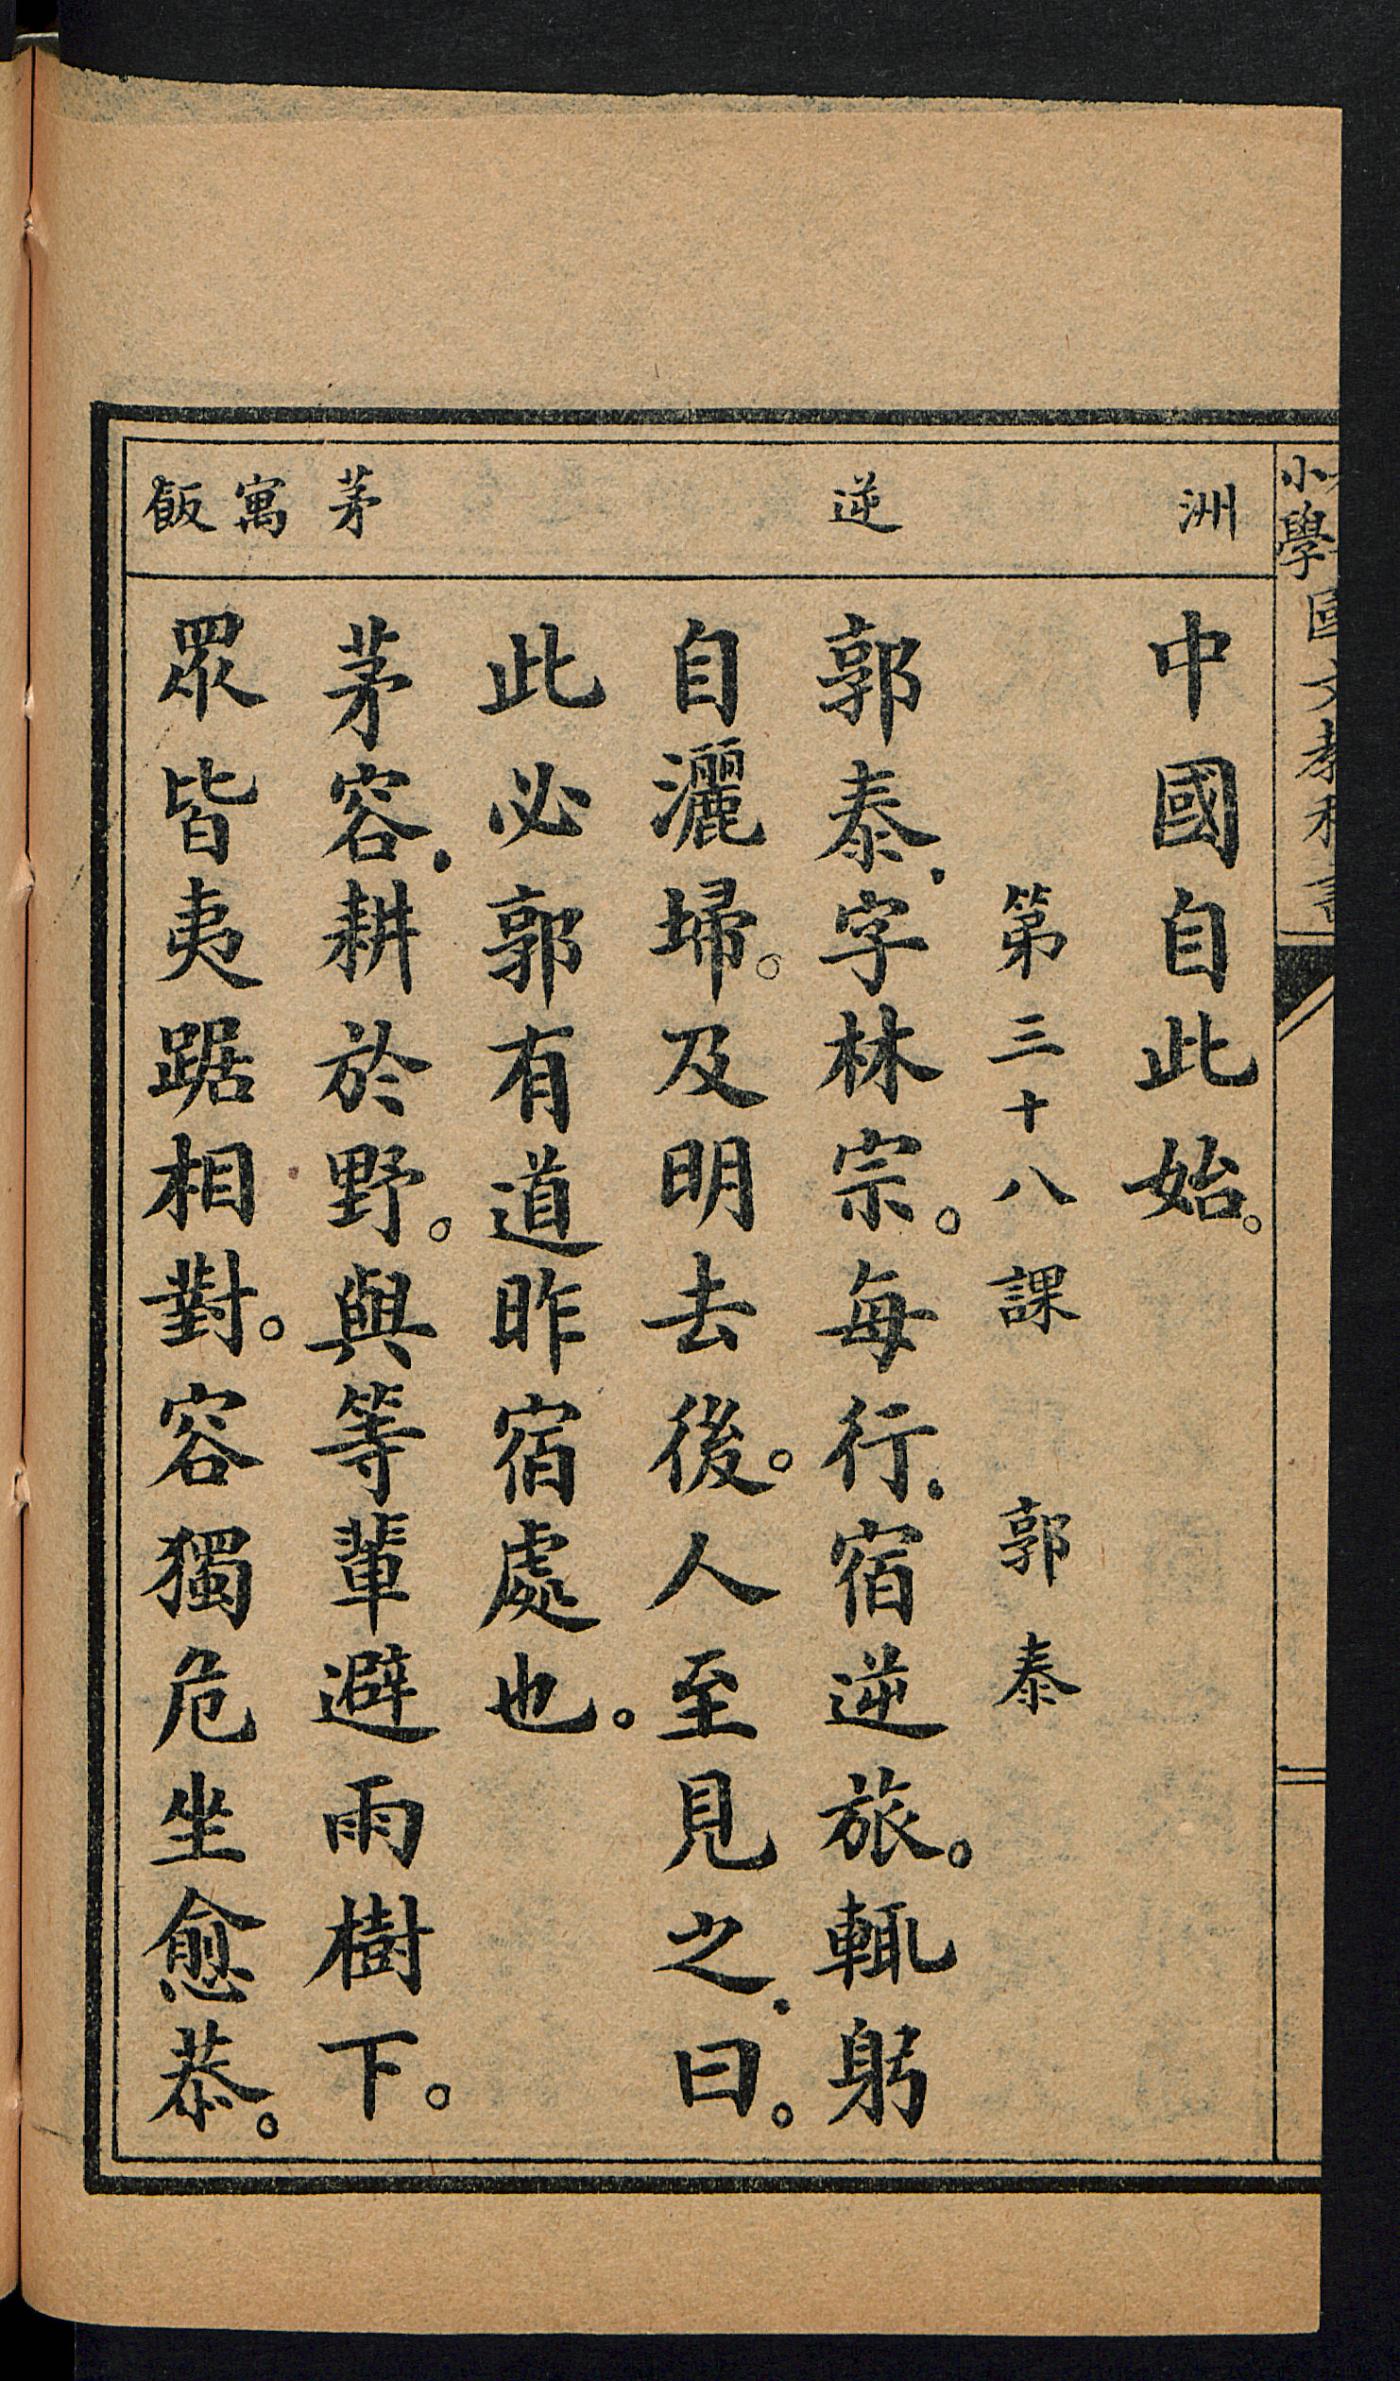 小學國文教科書
洲
逆
茅
寓
飯
中國自此始。
第三十八課　郭泰
郭泰.字林宗。每行.宿逆旅。輒躬
自灑埽。及明去後。人至見之.曰。
此必郭有道昨宿處也。
茅容.耕於野。與等輩避雨樹下。
眾皆夷踞相對。容獨危坐愈恭。